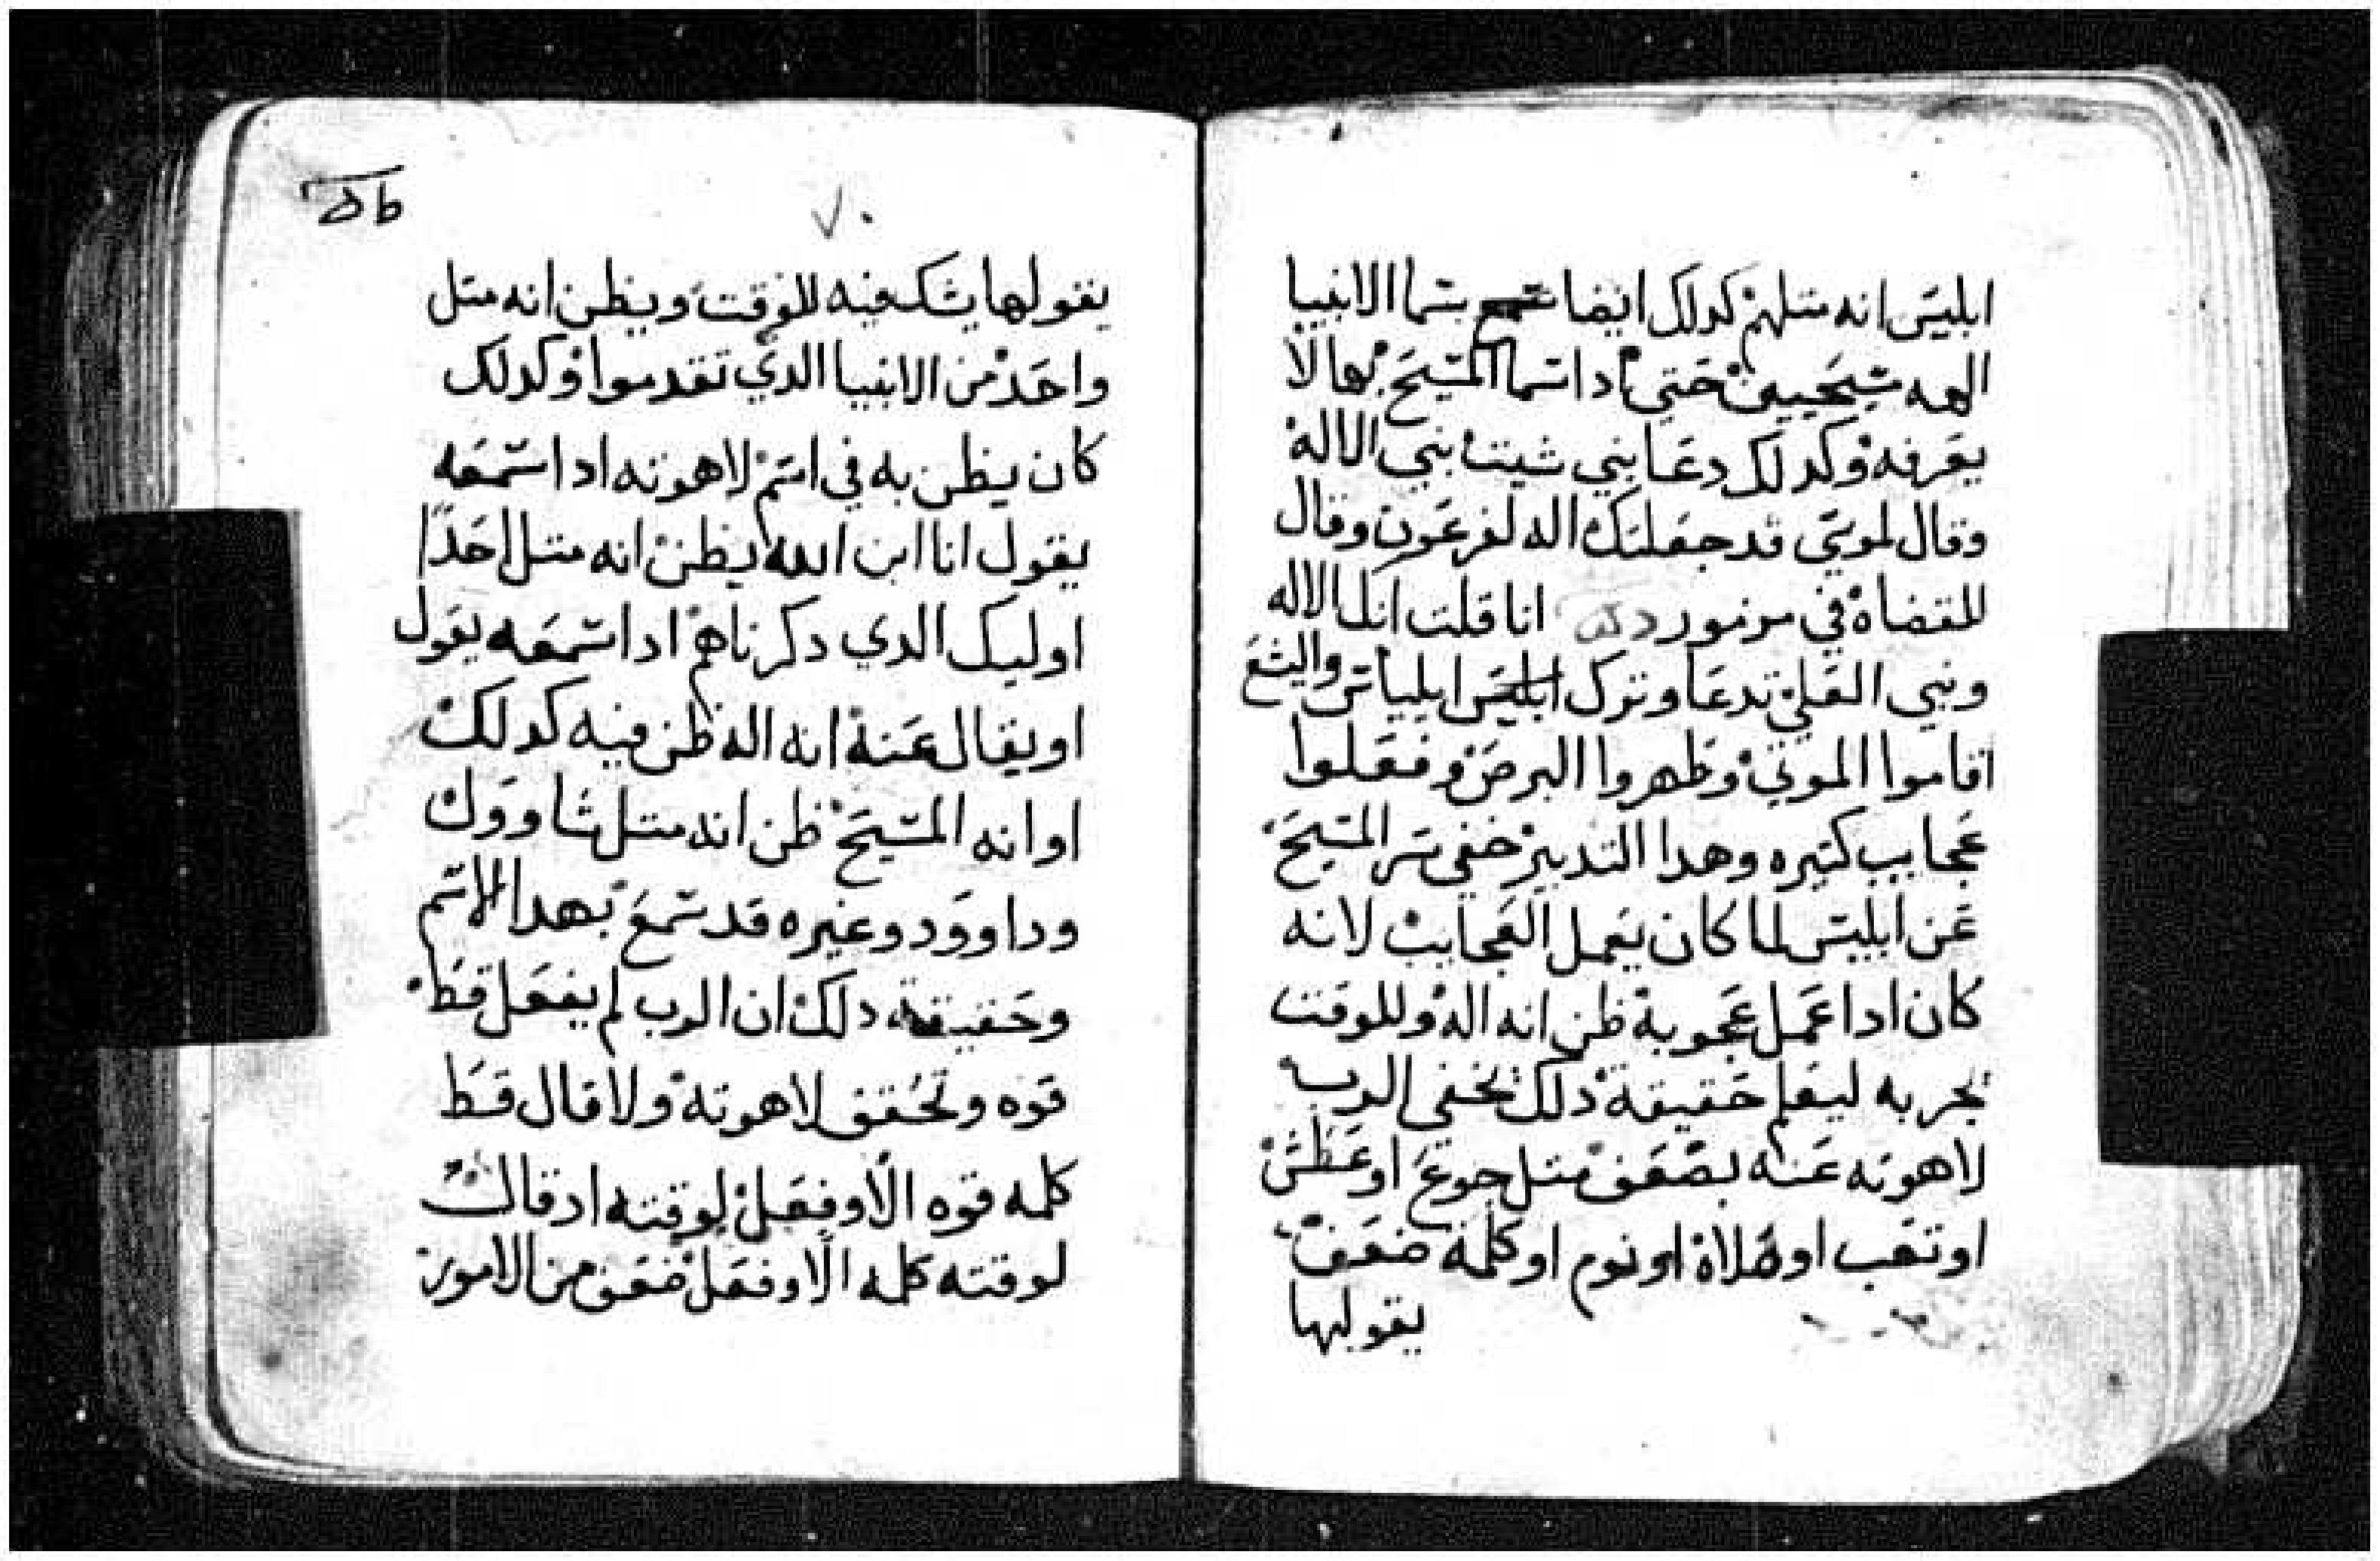 ابليس انه متلهم كدلك ايضا سمع بتما الانبيا
الهه مسيحيين حتي ادا سما المسيح بها لا
يعرفه وكدلك دعا بني شيت بني الاله
وقال لموسي قد جعلتك اله لفرعون وقال
للقضاه في مزمور انا قلت انكم الاله
وبني العلي تدعا وترك ابليس ايلياس واليشع
اقاموا الموتي وطهروا البرص وفعلوا
عجايب كتيره وهدا التدبير خفي سر المسيح
عن ابليس لما كان يعمل العجايب لانه
كان ادا عمل عجوبة ظن انه اله وللوقت
يجربه ليعلم حقيقة دلك يخفي الرب
لاهوته عنه بضعف متل جوع او عطش
او تعب او صلاة او نوم او كلمة ضعف
يقولها
٧٠
يقولها يشك فيه للوقت ويظن انه متل
واحد من الانبيا الدي تقدموا وكدلك
كان يظن به في اسم لاهوته ادا سمعه
يقول انا ابن الله يظن انه متل احدا
اوليك الدي دكرناهم ادا سمعه يقول
او يقال عنه انه اله ظن فيه كدلك
او انه المسيح ظن انه متل شاوول
وداوود وغيره قد سمع بهدا الاسم
وحقيقة دلك ان الرب لم يفعل قط
قوه وتحقق لاهوته ولا قال قط
كلمه قوه الا وفعل لوقته اد قال
لوقته كلمه الا وفعل ضعف من الامور